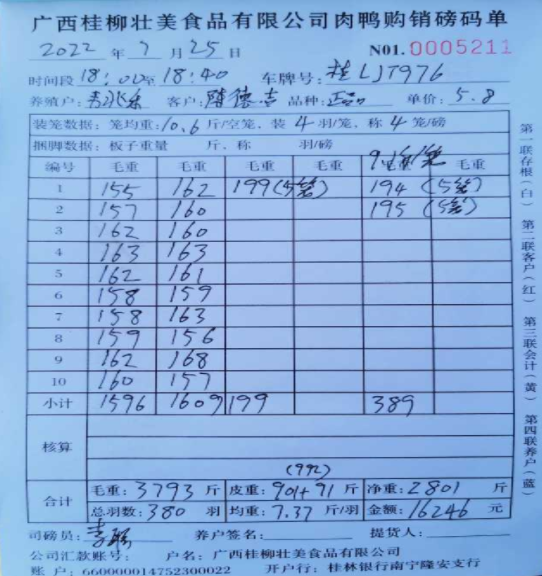 广西桂柳壮美食品有限公司肉鸭购销磅码单
2022 年 7 月 25 日 N01. 0005211
时间段 18:00至 18:40 车牌号: 桂LJT976
养殖户: 客户: 品种: 正品 单价: 5.8
装笼数据: 笼均重: 10.6 斤/空笼, 装 4 羽/笼, 称 4 笼/磅
捆脚数据: 板子重量 斤, 称 羽/磅
编号 毛重 毛重 毛重 毛重 毛重
1 155 162 199(5笼) 194 (5笼)
2 157 160 195 (5笼)
3 162 160
4 163 163
5 162 161
6 158 159
7 158 163
8 159 156
9 162 168
10 160 157
小计 1596 1609 199 389
核算
合计 毛重: 3793 斤 皮重: 901+91 斤 净重: 2801 斤
(992)
总羽数: 380 羽 均重: 7.37 斤/羽 金额: 16246 元
司磅员: 养户签名: 提货人:
公司汇款账号: 户名: 广西桂柳壮美食品有限公司
账户: 660000014752300022 开户行: 桂林银行南宁隆安支行
第一联存根(白) 第二联客户(红) 第三联会计(黄) 第四联养户(蓝)